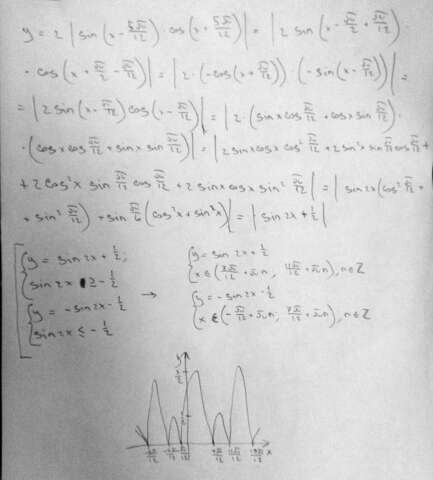 y = 2 | sin (x - 5π/12) · cos (x + 5π/12) | = | 2 sin (x - π/2 + π/12) ·
· cos (x + π/2 - π/12) | = | 2 · (-cos (x + π/12)) · (-sin (x - π/12)) | =
= | 2 sin (x - π/12) cos (x - π/12) | = | 2 · (sin x cos π/12 + cos x sin π/12) ·
· (cos x cos π/12 + sin x sin π/12) | = | 2 sin x cos x cos² π/12 + 2 sin² x sin π/12 cos π/12 +
+ 2 cos² x sin π/12 cos π/12 + 2 sin x cos x sin² π/12 | = | sin 2x (cos² π/12 +
+ sin² π/12) + sin π/6 (cos² x + sin² x) | = | sin 2x + 1/2 |
y = sin 2x + 1/2;
sin 2x ≥ - 1/2
y = - sin 2x - 1/2
sin 2x ≤ - 1/2
→
y = sin 2x + 1/2
n ∈ Z
y = - sin 2x - 1/2
x ∈ (- π/12 + πn; 7π/12 + πn), n ∈ Z
y
3/2
1/2
x